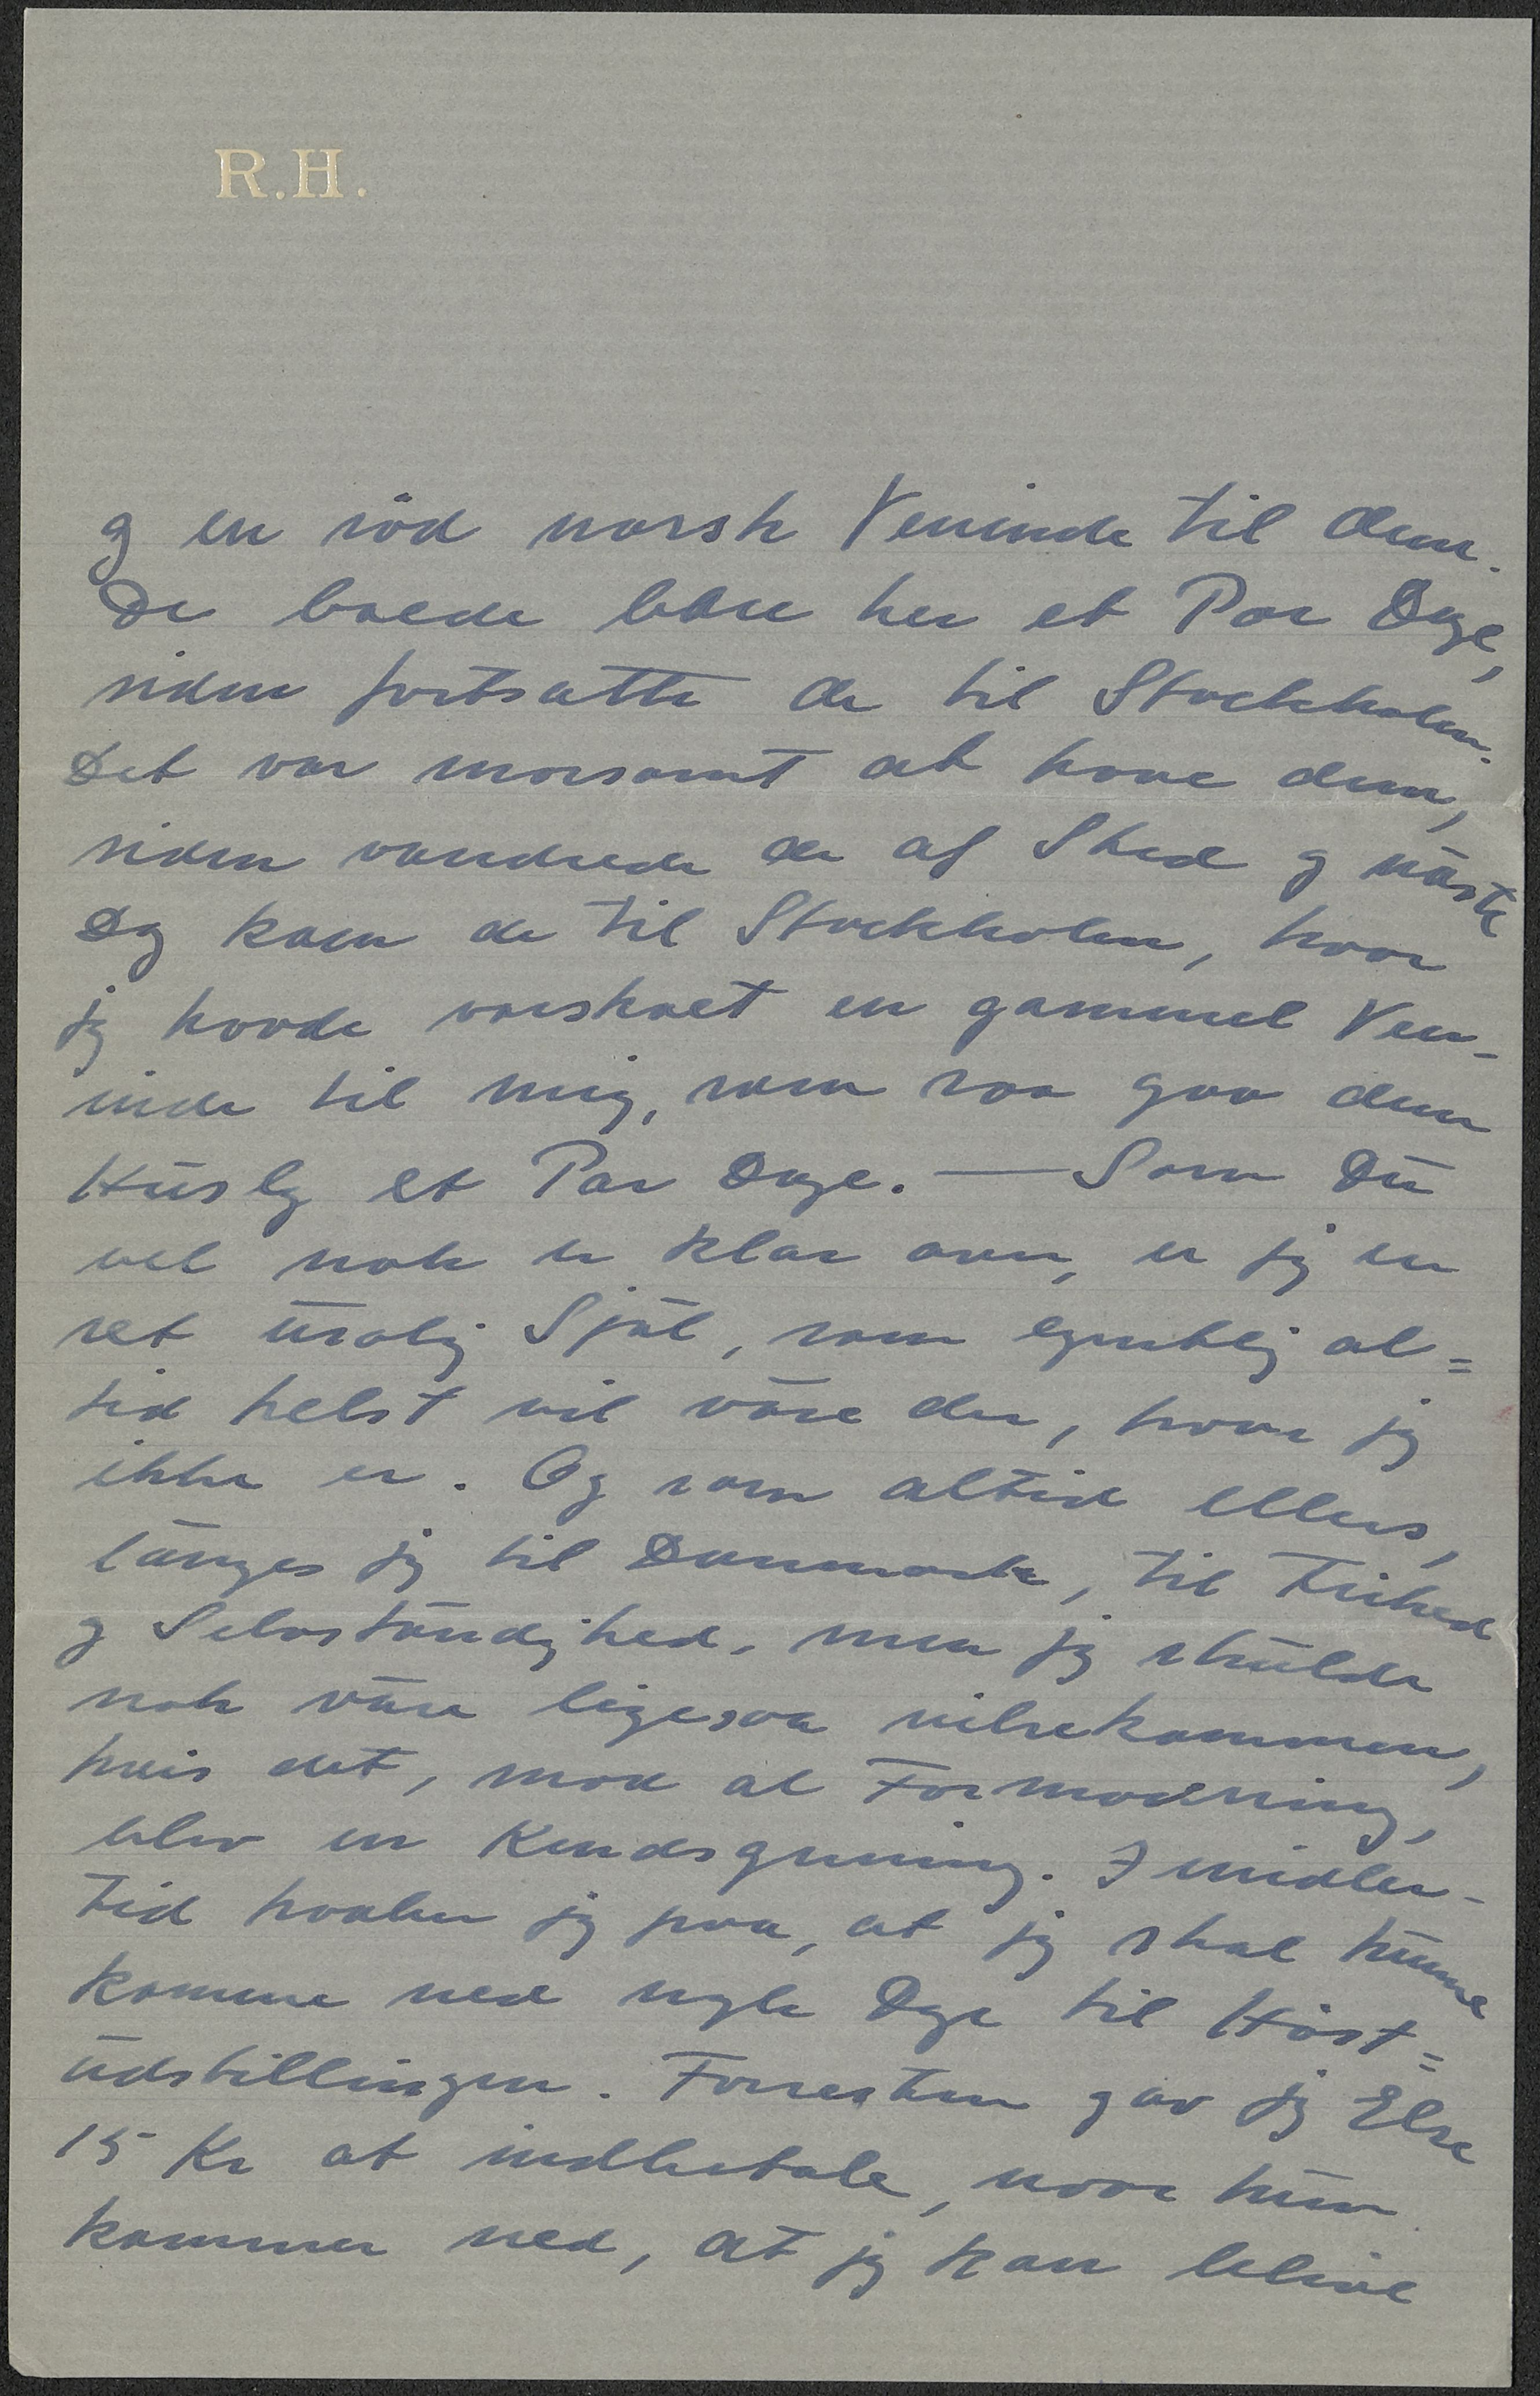 R.H.
og en söd norsk Veninde til dem.
De boede bare her et Par Dage,
siden fortsatte de til Stockholm.
Det var morsomt at have dem,
siden vandrede de af Sted og näste
Dag kom de til Stockholm, hvor
jeg havde varskoet en gammel Ven-
inde til mig, som saa gav dem
Husly et Par Dage. — Som Du
vel nok er klar over, er jeg en
ret urolig Själ, som egentlig al=
tid helst vil väre der, hvor jeg
ikke er. Og som altid ellers,
länges jeg til Danmark, til Frihed
og Selvständighed, men jeg skulde
nok väre ligesaa vilsekommen,
hvis det, mod al Formodning,
blev en Kendsgerning. Imidler-
tid haaber jeg paa, at jeg skal kunne
komme ned nogle Dage til Höst=
udstillingen. Forresten gav jeg Else
15 Kr at indbetale, naar hun
kommer ned, at jeg kan blive